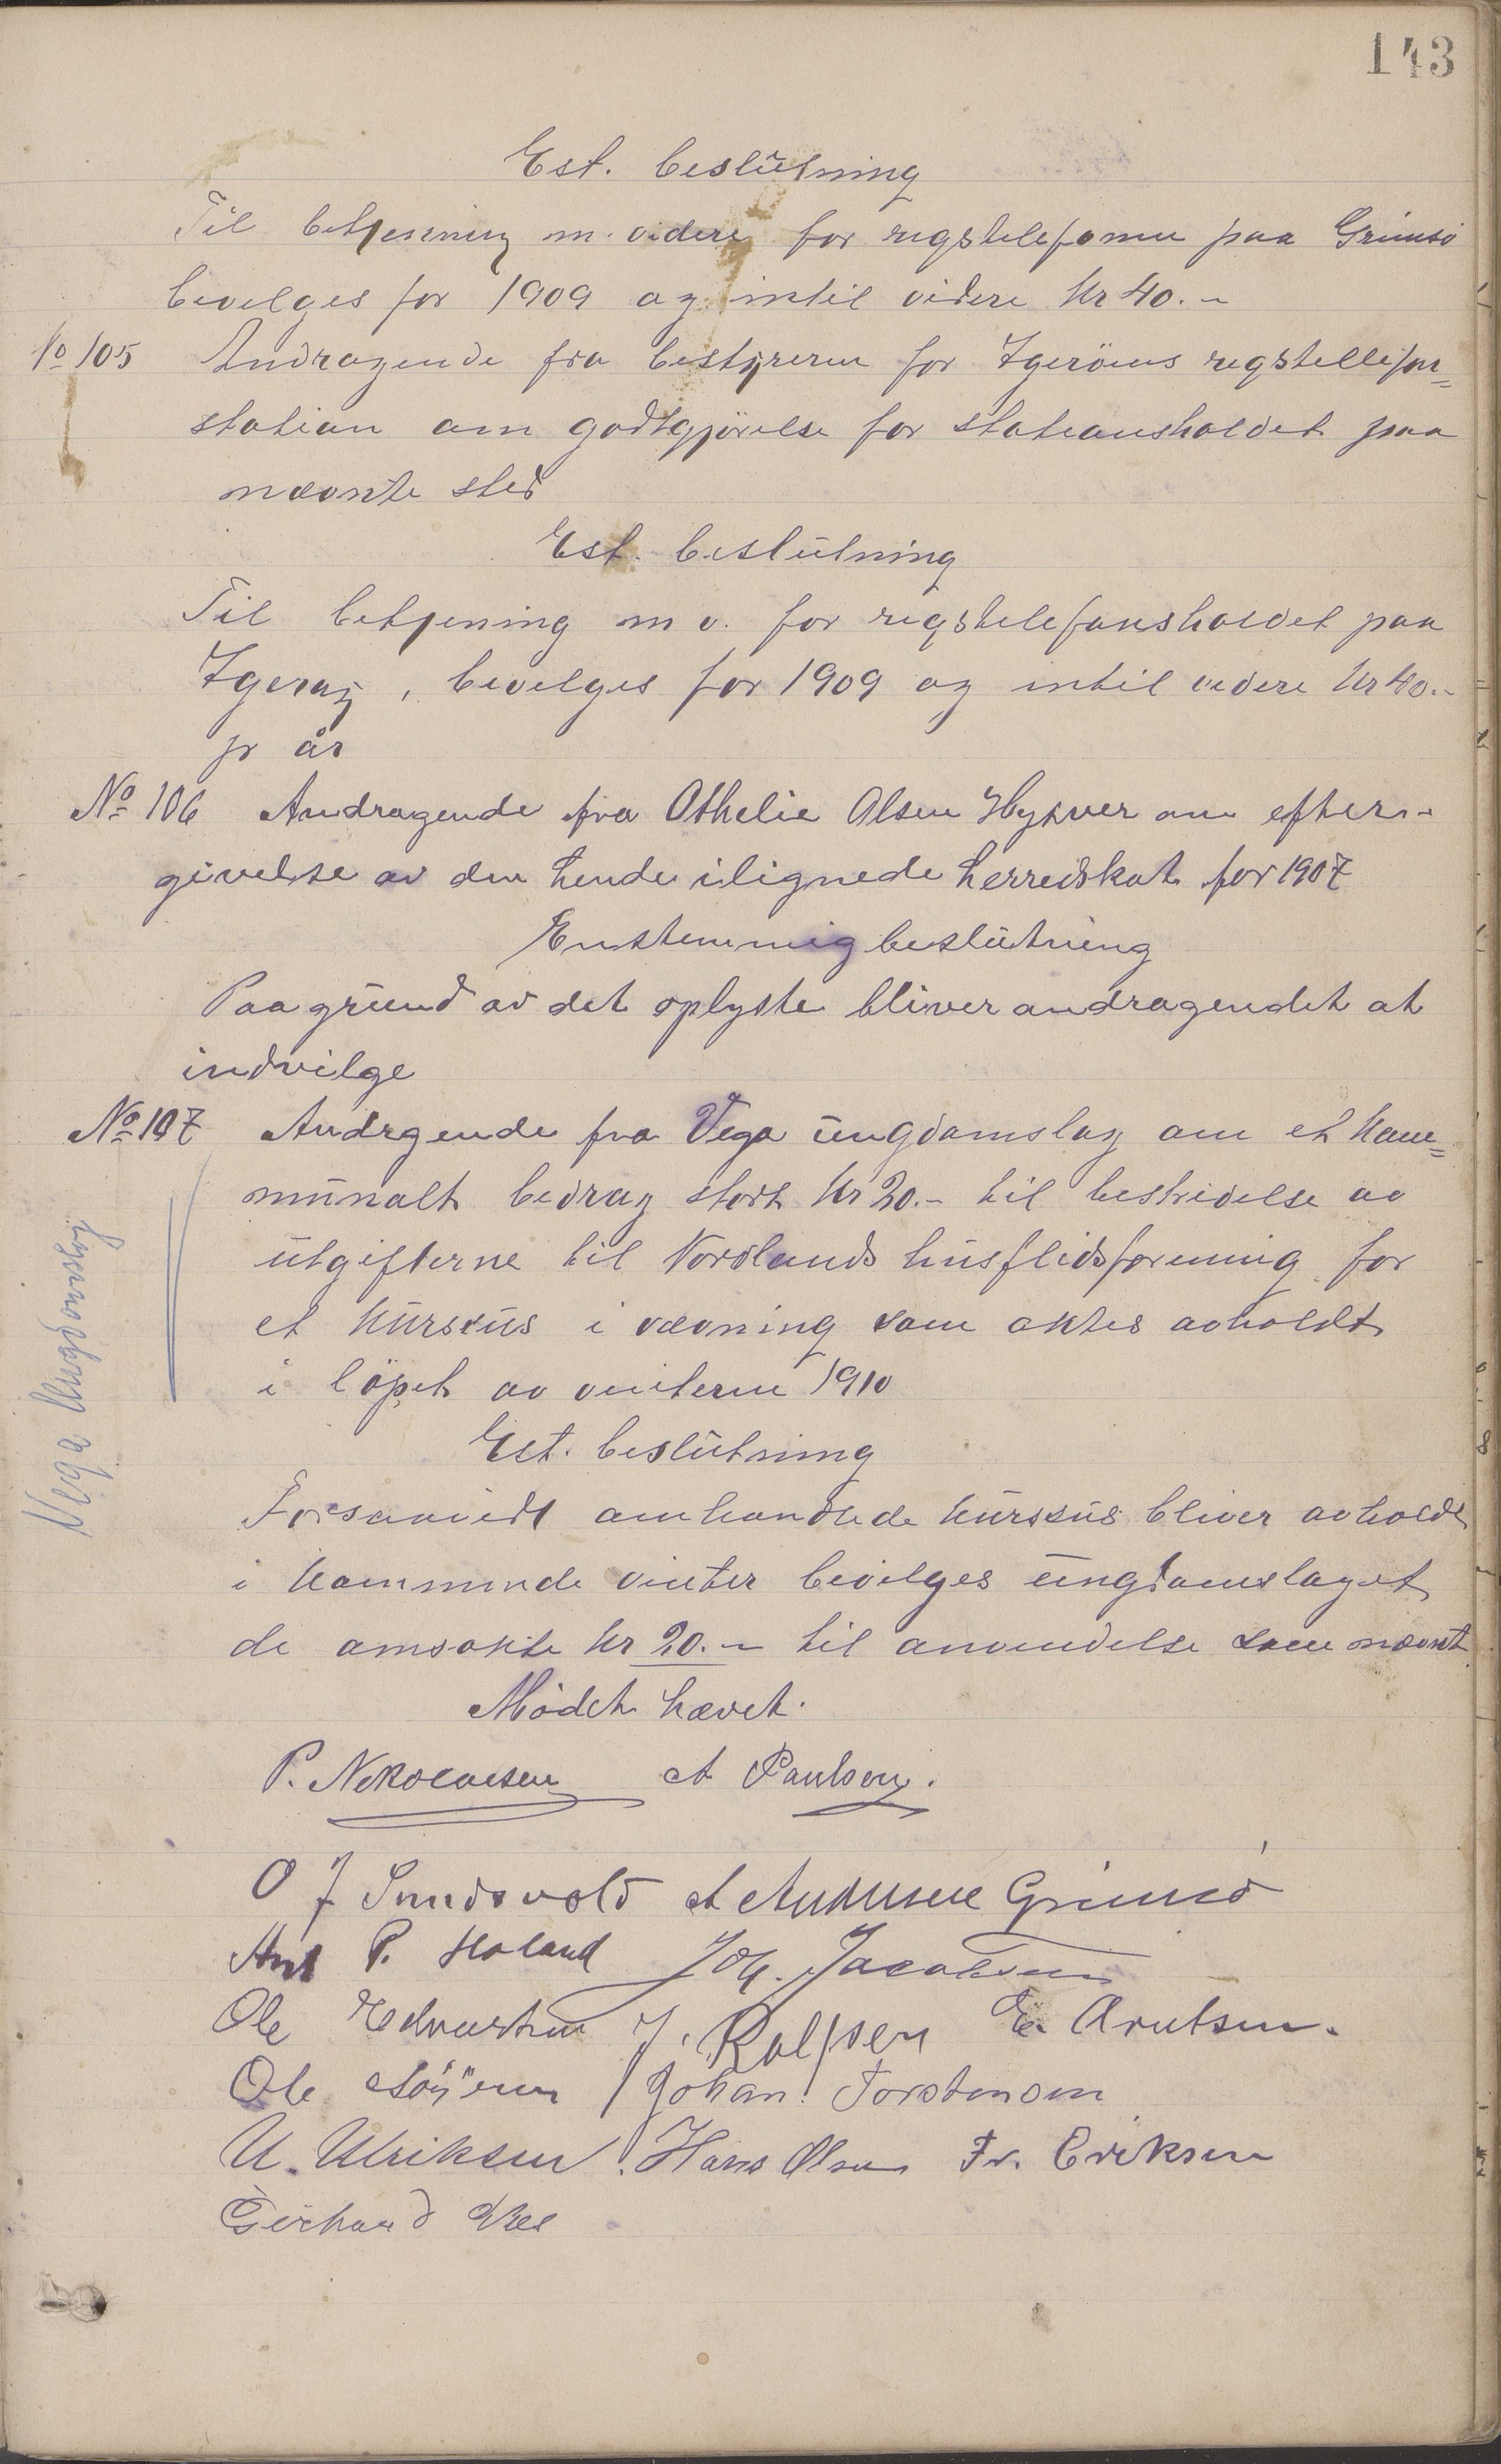 143
Est. beslutning
Til betjening m. videre for rigstelefonen paa Grimsö
bevelges for 1909 og intil videre Kr 40.-
No 105 Andragende fra bestyreren for Igeröens rigstellefon=
station om godtgjörelse for stationsholdet paa
nævnte sted
Est. beslutning
Til betjening m v. for rigstelefonsholdet paa
Igeröy, bevelges for 1909 og intil videre Kr 40.-
pr år
No 106 Andragende fra Othelie Olsen Hysvær om efter-
givelse av den hende ilignede herredskat for 1907
Enstemmig beslutning
Paa grund av det oplyste bliver andragendet at
indvilge
No 107 Andrgende fra Vega ungdomslag om et kom=
munalt bedrag stort Kr 20.- til bestridelse av
utgifterne til Nordlands husflidsforening for
et kursus i vævning som aktes avholdt
i löpet av vinteren 1910
Vega Ungdomslag
Est. beslutning
Forsaavidt omhandlede kursus bliver avholdt
i kommende vinter bevilges ungdomslaget
de omsökte Kr 20.- til anvendelse som nævnt
Mödet hævet.
P. Nikolaisen A Paulsen.
O J Sundsvold A Andersen Grimsö
Ant P. Holand Joh. Jacobsen
Ole Edvartsen J. Rolfsen E. Arntsen.
Ole Johan Torstensen
U. Ulriksen Hans Olsen Fr. Eriksen
Gerhard